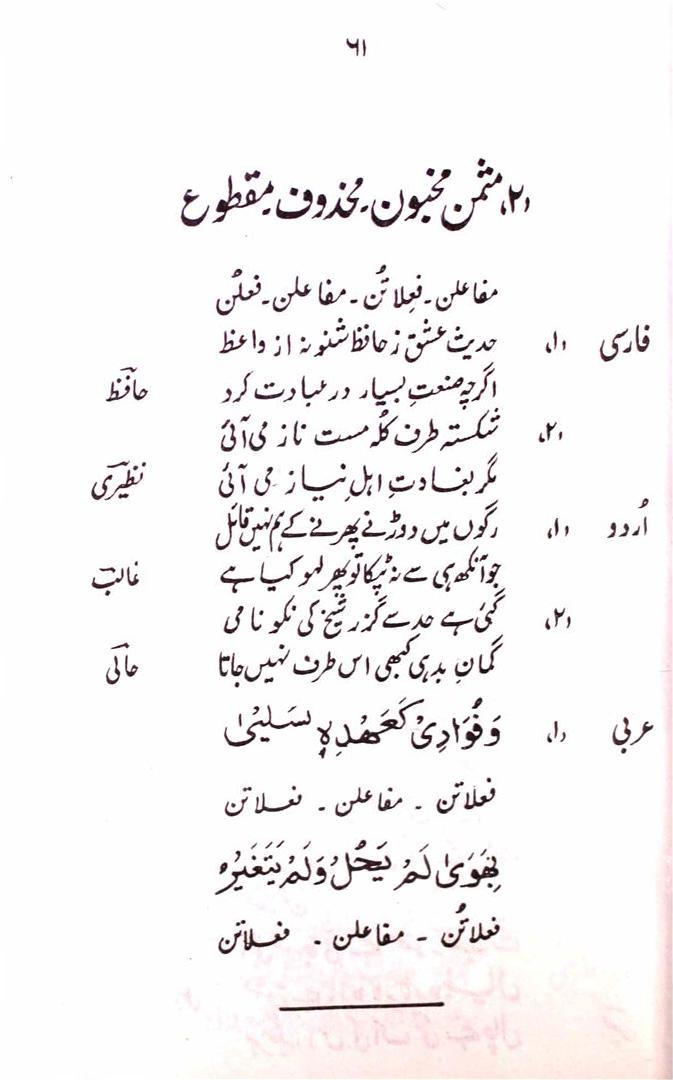 ۶۱
(۲) مثمن مخبون۔ محذوف۔ مقطوع
مفاعلن۔ فعِلاتُن۔ مفاعلن۔ فعلُن
فارسی (۱) حدیث عشق ز حافظ شنو نہ از واعظ
اگرچہ صنعتِ بسیار در عبادت کرد حافظؔ
(۲) شکستہ طرف کُلہ مست ناز می آئی
مگر بغادتِ اہلِ نیاز می آئی نظیریؔ
اُردو (۱) رگوں میں دوڑنے پھرنے کے ہم نہیں قائل
جو آنکھ ہی سے نہ ٹپکا تو پھر لہو کیا ہے غالبؔ
(۲) گئی ہے حد سے گزر شیخ کی نکو نامی
گمانِ بد ہی کبھی اس طرف نہیں جاتا حالیؔ
عربی (۱) وَفُوَادِیْ کَعَهْدِهٖ سَلِیْمٰی
فعلاتن ۔ مفاعلن ۔ فعلاتن
بِهَوَیٰ لَمْ یَحُلْ وَلَمْ یَتَغَیَّرْ
فعلاتُن ۔ مفاعلن ۔ فعلاتن